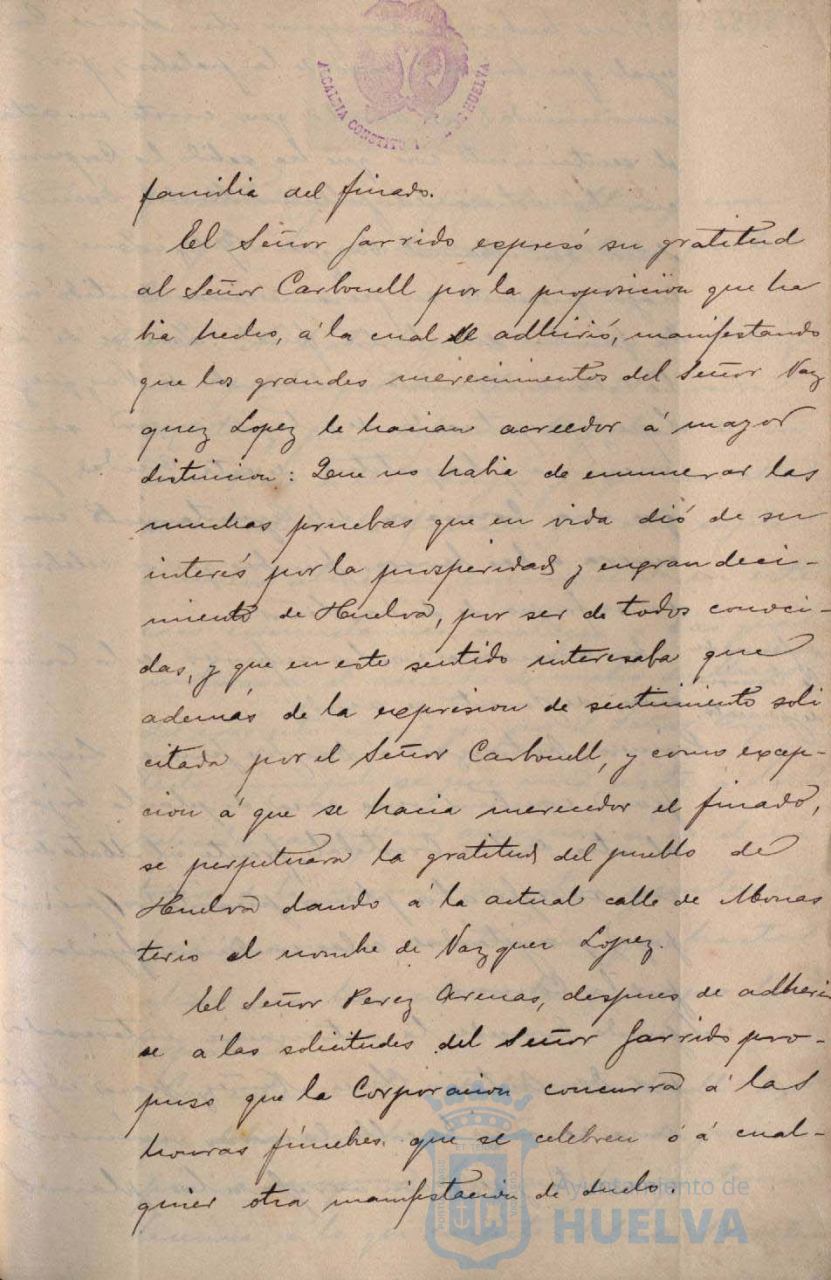 ALCALDIA CONSTITU DE HUELVA
familia del finado.
El Señor Garrido expresó su gratitud
al Señor Carbonell por la proposicion que ha
bia hecho, á la cual se adhirió, manifestando
que los grandes merecimientos del Señor Vaz
quez Lopez le hacian acreedor á mayor
distincion: Que no habia de enumerar las
muchas pruebas que en vida dió de su
interés por la prosperidad y engrandeci-
miento de Huelva, por ser de todos conoci-
das, y que en este sentido interesaba que
además de la expresion de sentimiento soli
citada por el Señor Carbonell, y como excep-
cion á que se hacia merecedor el finado,
se perpetuara la gratitud del pueblo de
Huelva dando á la actual calle de Monas
terio el nombre de Vazquez Lopez.
El Señor Perez Arenas, despues de adherir
se á las solicitudes del Señor Garrido pro-
puso que la Corporacion concurra á las
honras fúnebres que se celebren ó á cual-
quier otra manifestacion de duelo.
Ayuntamiento de
HUELVA